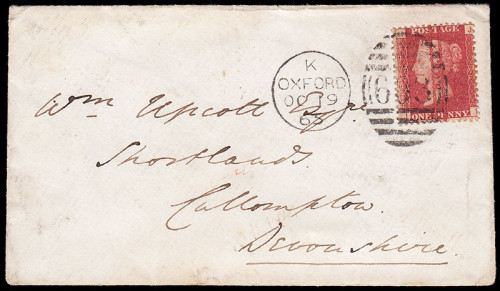 POSTAGE
J
K
OXFORD
OC 19
603
ONE PENNY
Wm Upcott Esqr.
Shortlands
Collompton
Devonshire.